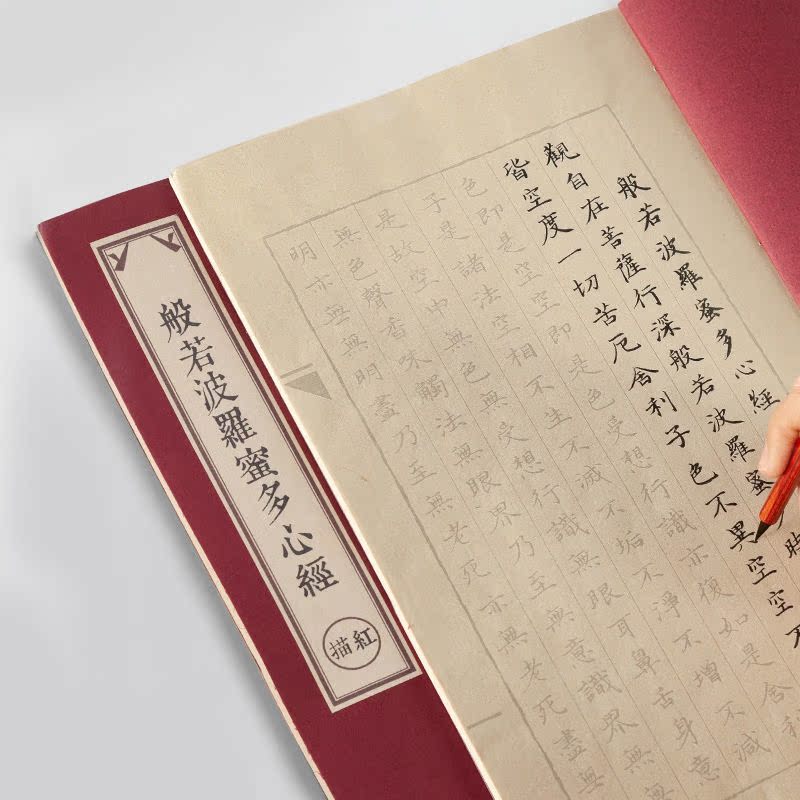 般若波羅蜜多心經
觀自在菩薩行深般若波羅蜜時
皆空度一切苦厄舍利子色不異空空不
色即是空空即是色受想行識亦復如是舍利
子是諸法空相不生不滅不垢不淨不增不減
是故空中無色無受想行識無眼耳鼻舌身意
無色聲香味觸法無眼界乃至無意識界無無
明亦無無明盡乃至無老死亦無老死盡無
般若波羅蜜多心經
描紅